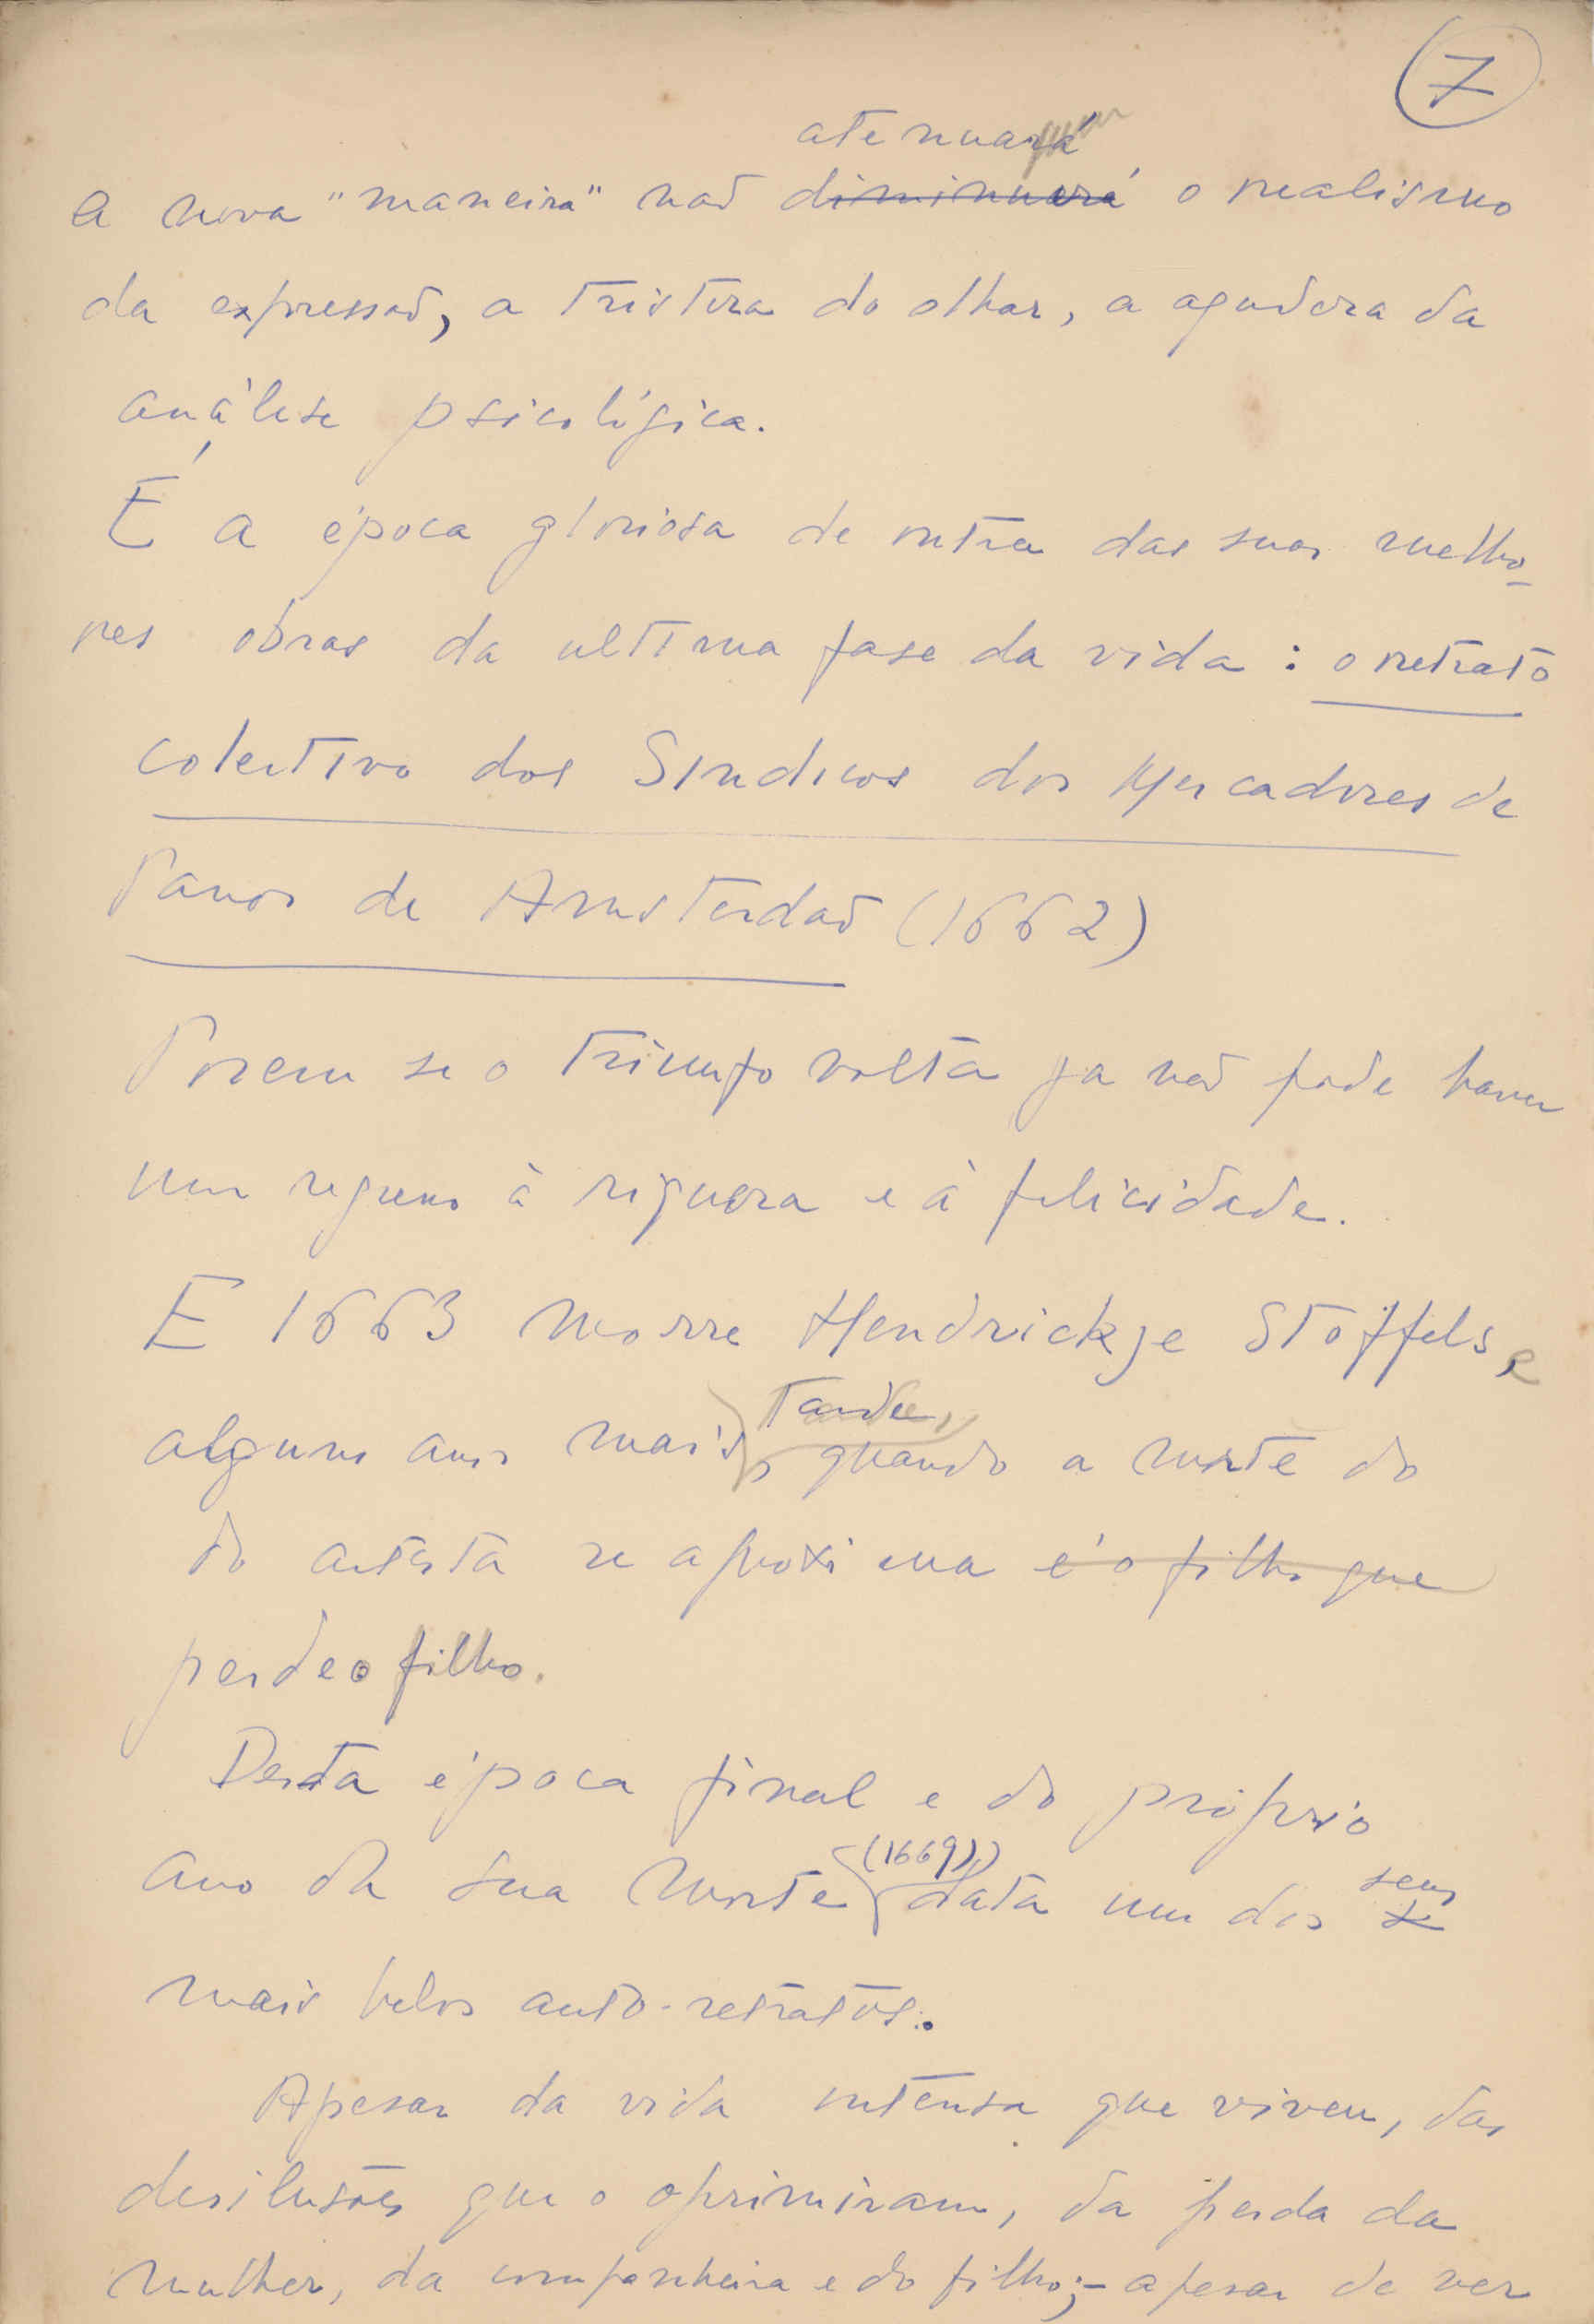 7
atenuará
A nova "maneira" não diminuirá o realismo
da expressão, a tristeza do olhar, a agudeza da
análise psicológica.
É a época gloriosa de outra das suas melho-
res obras da ultima fase da vida : o retrato
colectivo dos Sindicos dos Mercadores de
Panos de Amsterdão (1662)
Porem se o triunfo volta ja não pode haver
um regresso à riqueza e à felicidade.
E 1663 morre Hendrickje Stoffels, e
alguns anos mais tarde, quando a morte do
do artista se aproxima é o filho que
perde o filho.
Desta época final e do próprio
ano da sua morte (1669) data um dos seus
mais belos auto-retratos.
Apesar da vida intensa que viveu, das
desilusões que o oprimiram, da perda da
mulher, da companheira e do filho; - apesar de ver